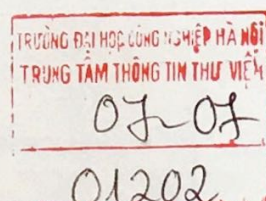 TRƯỜNG ĐẠI HỌC CÔNG NGHIỆP HÀ NỘI
TRUNG TÂM THÔNG TIN THƯ VIỆN
07-07
01202